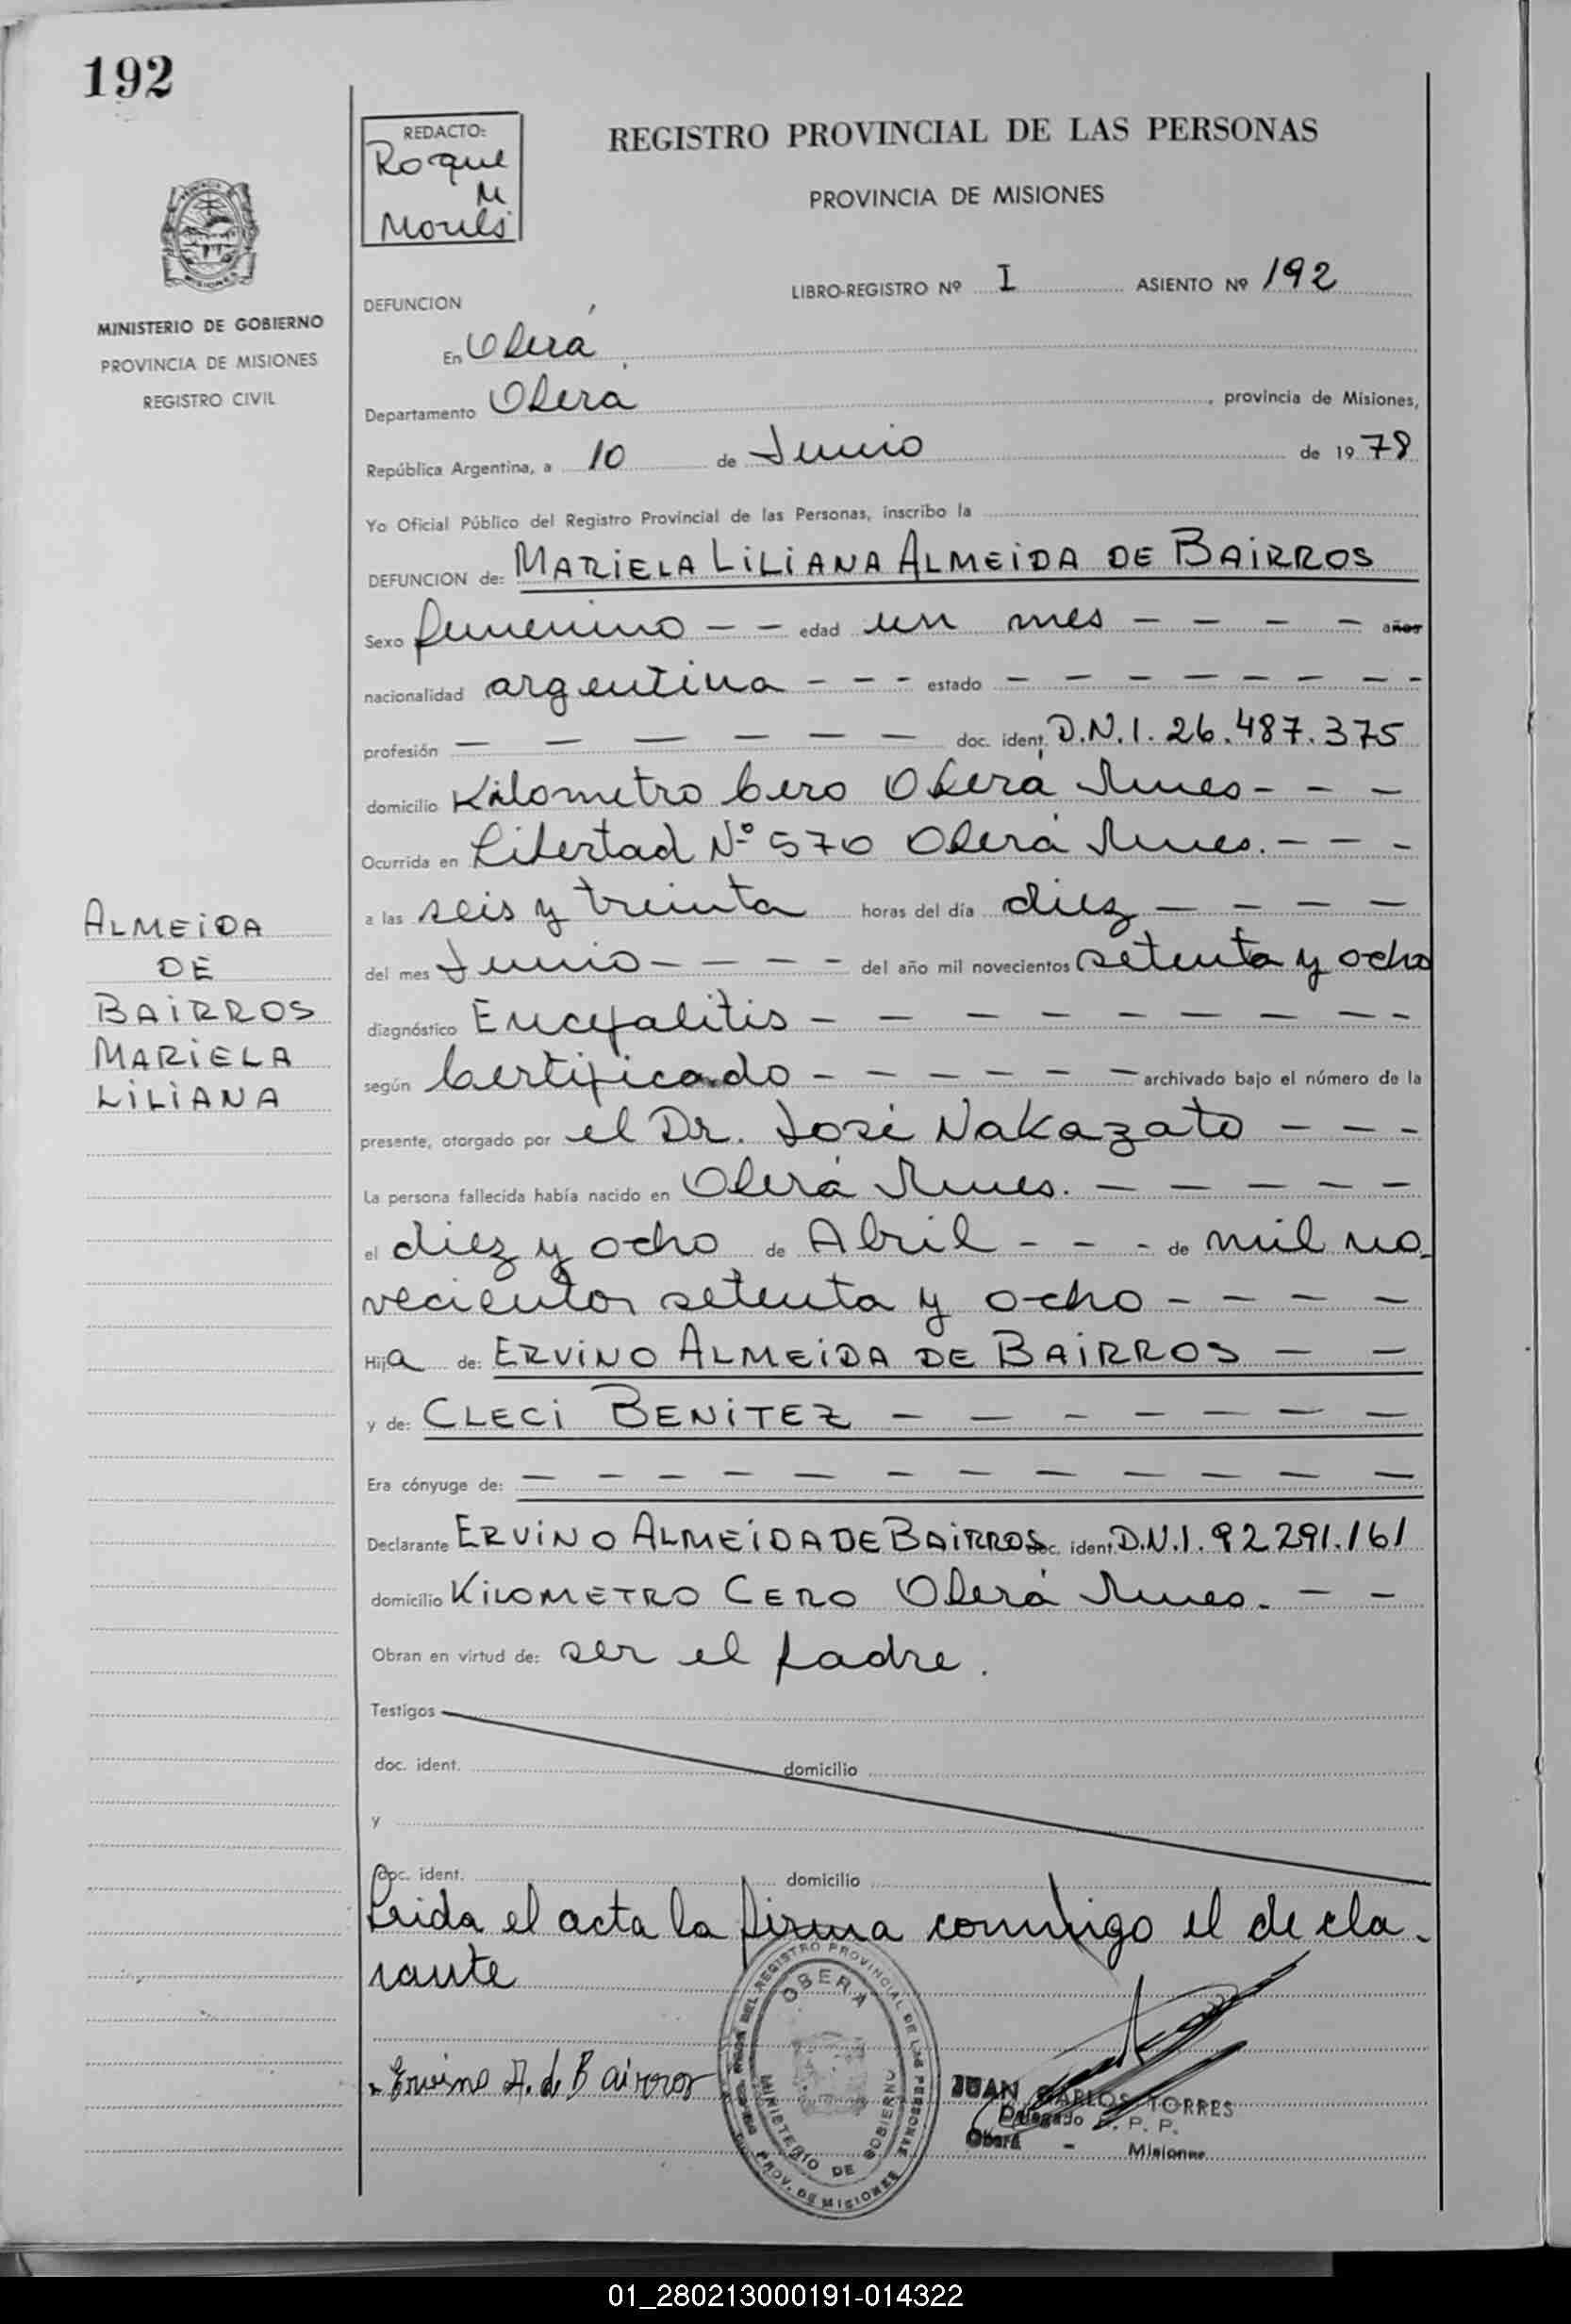 192
REDACTO:
Roque
M
REGISTRO PROVINCIAL DE LAS PERSONAS
PROVINCIA DE MISIONES
MINISTERIO DE GOBIERNO
PROVINCIA DE MISIONES
REGISTRO CIVIL
LIBRO-REGISTRO Nº I ASIENTO Nº 192
DEFUNCION
En Oberá
Departamento Oberá, provincia de Misiones,
República Argentina, a 10 de Junio de 1978
Yo Oficial Público del Registro Provincial de las Personas, inscribo la
DEFUNCION de: MARIELA LILIANA ALMEIDA DE BAIRROS
Sexo femenino - - edad un mes - - - - años
nacionalidad argentina - - - estado - - - - - - - -
profesión - - - - - - - doc. ident. D.N.I. 26.487.375
domicilio Kilometro Cero Oberá Mnes - - -
Ocurrida en Libertad Nº 570 Oberá Mnes. - - -
a las seis y treinta horas del día diez - - - -
del mes Junio - - - - del año mil novecientos setenta y ocho
diagnóstico Encefalitis - - - - - - - - - -
según Certificado - - - - - - archivado bajo el número de la
presente, otorgado por el Dr. José Nakazato - - -
La persona fallecida había nacido en Oberá Mnes. - - - - -
el diez y ocho de Abril - - - de mil no-
vecientos setenta y ocho - - - -
Hija de: ERVINO ALMEIDA DE BAIRROS - -
y de: CLECI BENITEZ - - - - - - -
Era cónyuge de: - - - - - - - - - - - -
Declarante ERVINO ALMEIDA DE BAIRROS doc. ident. D.N.I. 92291.161
domicilio KILOMETRO CERO Oberá Mnes. - -
Obran en virtud de: ser el padre.
Testigos
doc. ident. domicilio
y
doc. ident. domicilio
Leida el acta la firma conmigo el decla-
rante
ALMEIDA
DE
BAIRROS
MARIELA
LILIANA
Ervino A. de Bairros
OBERA
MINISTERIO DE GOBIERNO
DEL REGISTRO PROVINCIAL DE LAS PERSONAS
PROV. DE MISIONES
JUAN CARLOS TORRES
Delegado R. P. P.
Oberá - Misiones
01_280213000191-014322